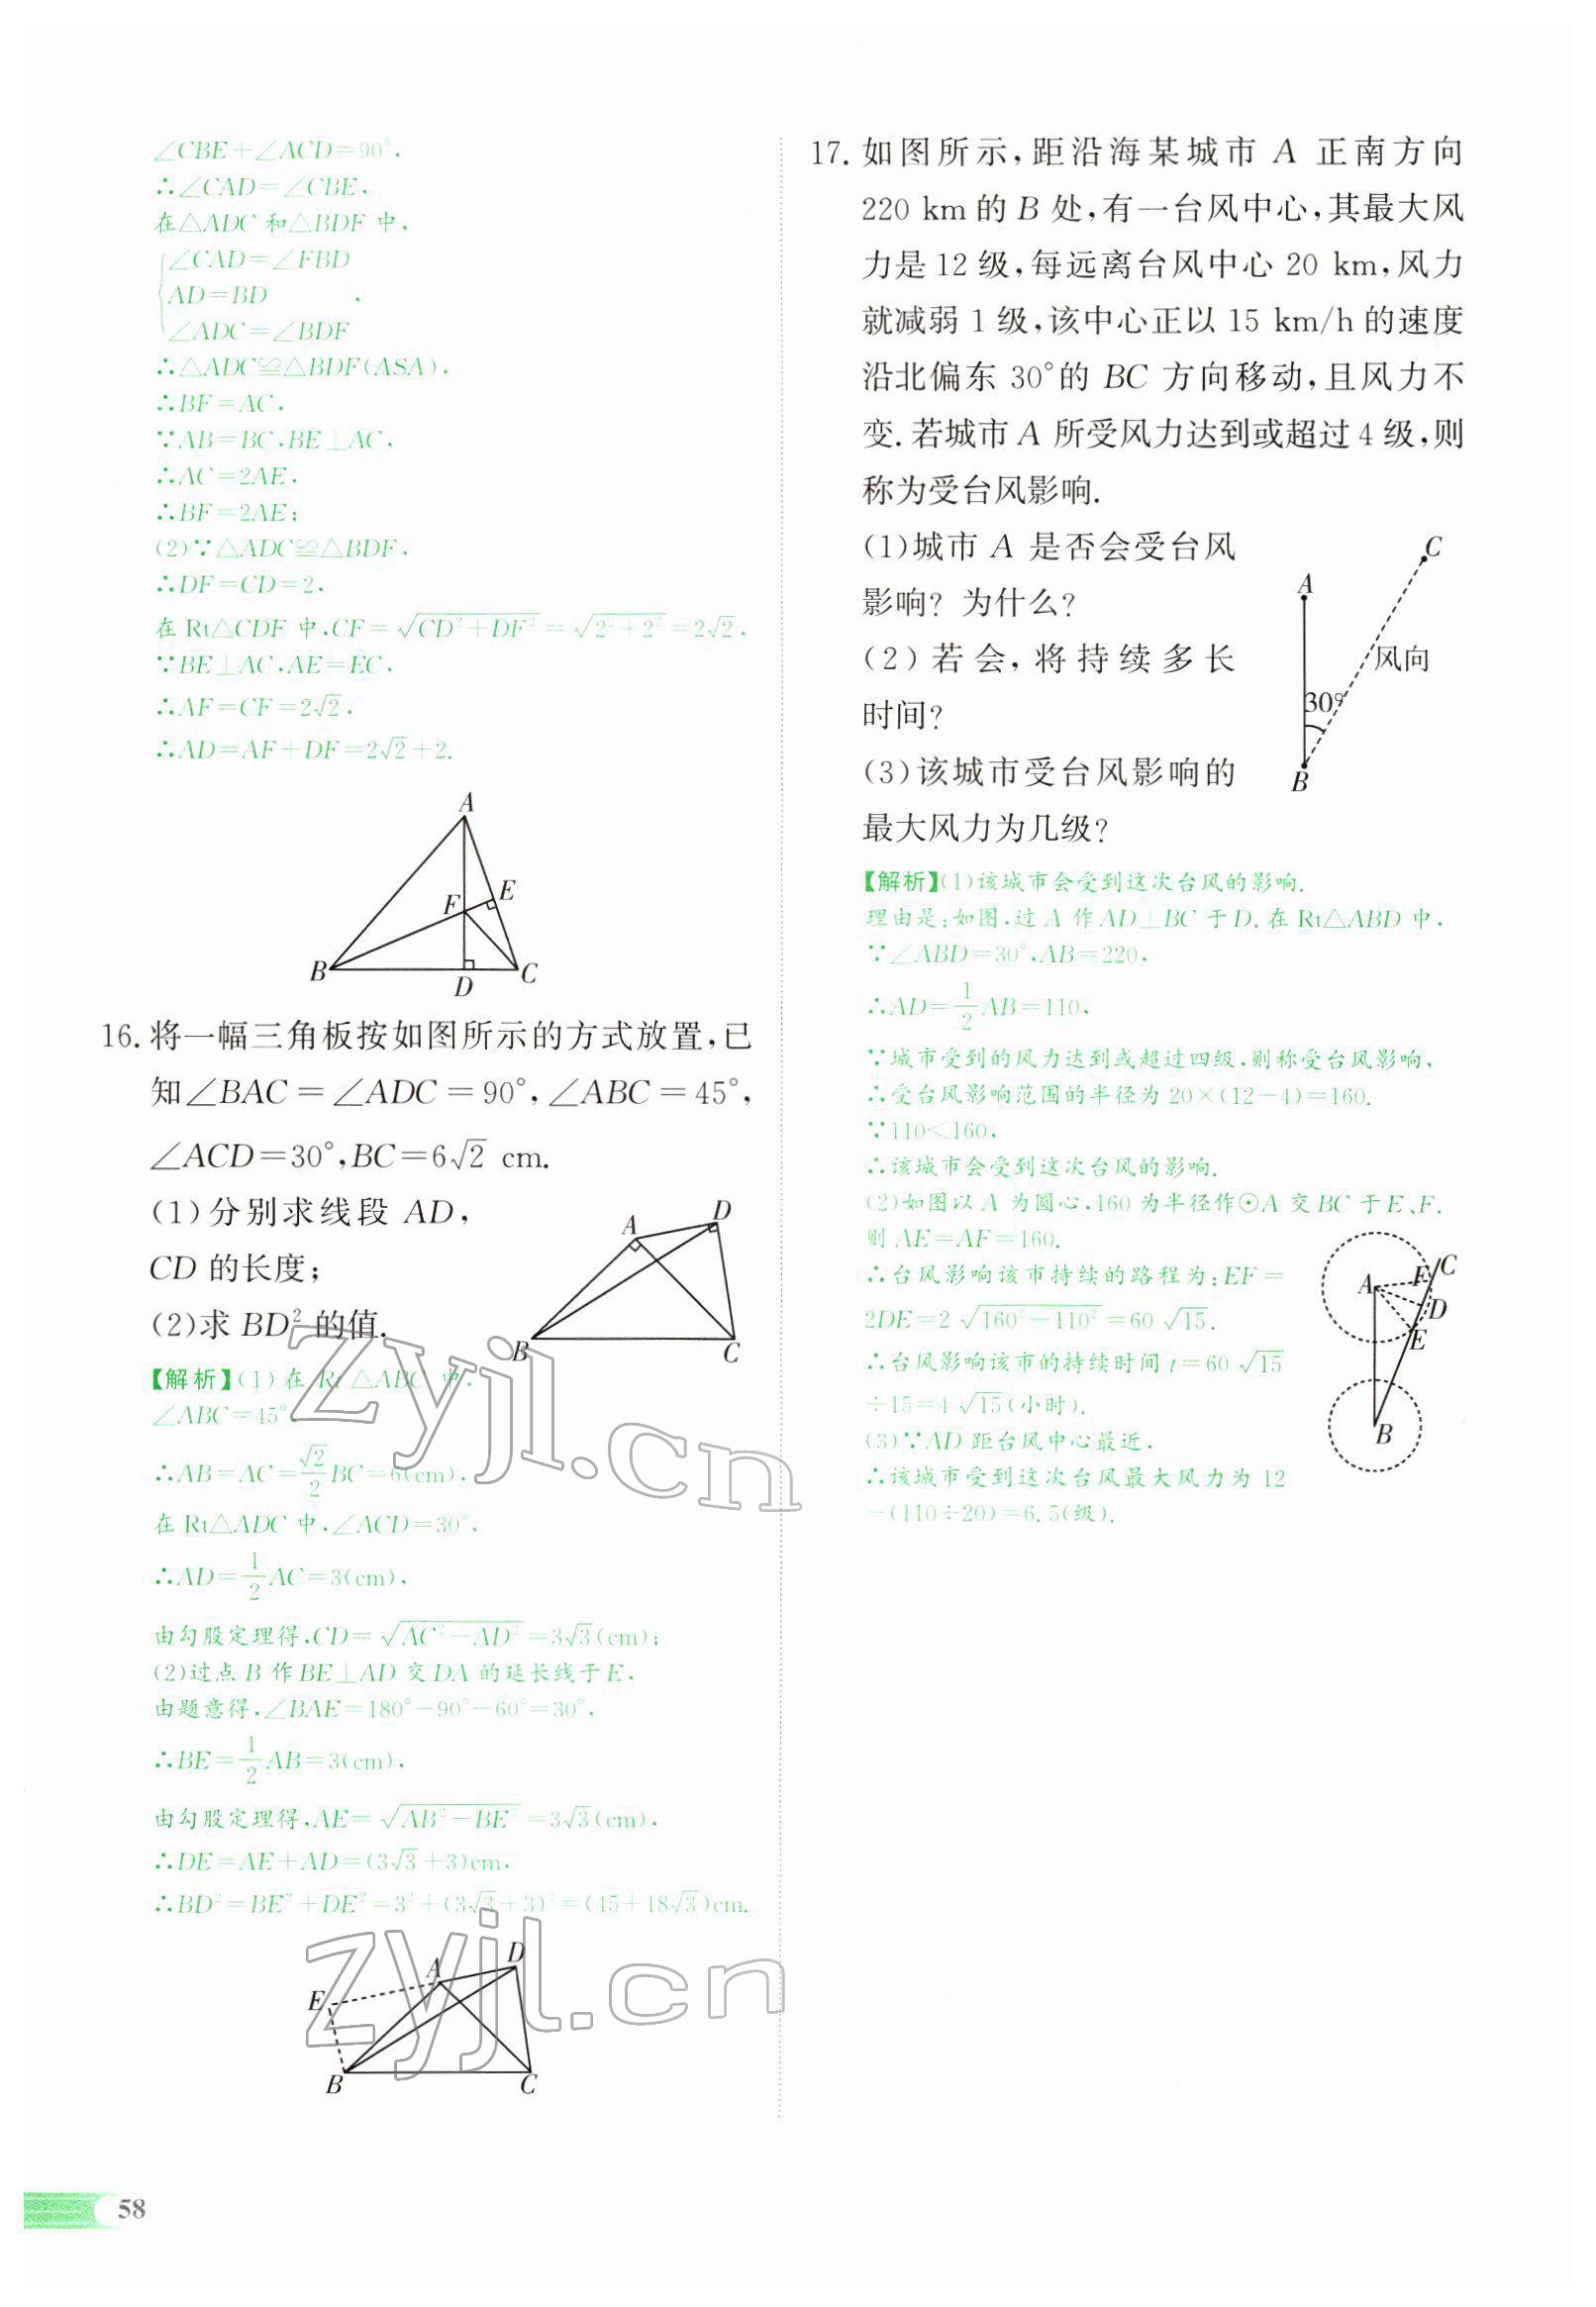 ∠CBE+∠ACD=90°,
∴∠CAD=∠CBE.
在△ADC 和△BDF 中,
∠CAD=∠FBD
AD=BD ,
∠ADC=∠BDF
∴△ADC≌△BDF(ASA).
∴BF=AC.
∵AB=BC,BE⊥AC,
∴AC=2AE.
∴BF=2AE;
(2)∵△ADC≌△BDF,
∴DF=CD=2.
在 Rt△CDF 中,CF=√(CD²+DF²)=√(2²+2²)=2√2.
∵BE⊥AC,AE=EC,
∴AF=CF=2√2.
∴AD=AF+DF=2√2+2.
A
F
E
B
D
C
16. 将一幅三角板按如图所示的方式放置,已
知∠BAC=∠ADC=90°,∠ABC=45°,
∠ACD=30°,BC=6√2 cm.
(1)分别求线段 AD,
CD 的长度;
(2)求 BD² 的值.
A
D
B
C
【解析】(1)在 Rt△ABC 中,
∠ABC=45°
∴AB=AC=√2/2 BC=6(cm),
在 Rt△ADC 中,∠ACD=30°,
∴AD=1/2 AC=3(cm),
由勾股定理得,CD=√(AC²−AD²)=3√3(cm);
(2)过点 B 作 BE⊥AD 交 DA 的延长线于 E,
由题意得,∠BAE=180°−90°−60°=30°,
∴BE=1/2 AB=3(cm),
由勾股定理得,AE=√(AB²−BE²)=3√3(cm),
∴DE=AE+AD=(3√3+3)cm,
∴BD²=BE²+DE²=3²+(3√3+3)²=(45+18√3)cm.
A
D
E
B
C
58
17. 如图所示,距沿海某城市 A 正南方向
220 km 的 B 处,有一台风中心,其最大风
力是 12 级,每远离台风中心 20 km,风力
就减弱 1 级,该中心正以 15 km/h 的速度
沿北偏东 30°的 BC 方向移动,且风力不
变.若城市 A 所受风力达到或超过 4 级,则
称为受台风影响.
(1)城市 A 是否会受台风
影响? 为什么?
(2)若会,将持续多长
时间?
(3)该城市受台风影响的
最大风力为几级?
C
A
风向
30°
B
【解析】(1)该城市会受到这次台风的影响.
理由是:如图,过 A 作 AD⊥BC 于 D.在 Rt△ABD 中,
∵∠ABD=30°,AB=220,
∴AD=1/2 AB=110,
∵城市受到的风力达到或超过四级,则称受台风影响,
∴受台风影响范围的半径为 20×(12−4)=160.
∵110<160,
∴该城市会受到这次台风的影响.
(2)如图以 A 为圆心,160 为半径作⊙A 交 BC 于 E、F.
则 AE=AF=160.
∴台风影响该市持续的路程为:EF=
2DE=2√(160²−110²)=60√15.
∴台风影响该市的持续时间 t=60√15
÷15=4√15(小时).
(3)∵AD 距台风中心最近,
∴该城市受到这次台风最大风力为 12
−(110÷20)=6.5(级).
A
F
C
D
E
B
zyjl.cn
zyjl.cn